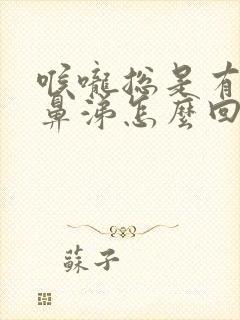 喉嚨總是有
鼻涕怎麼回
蘇子